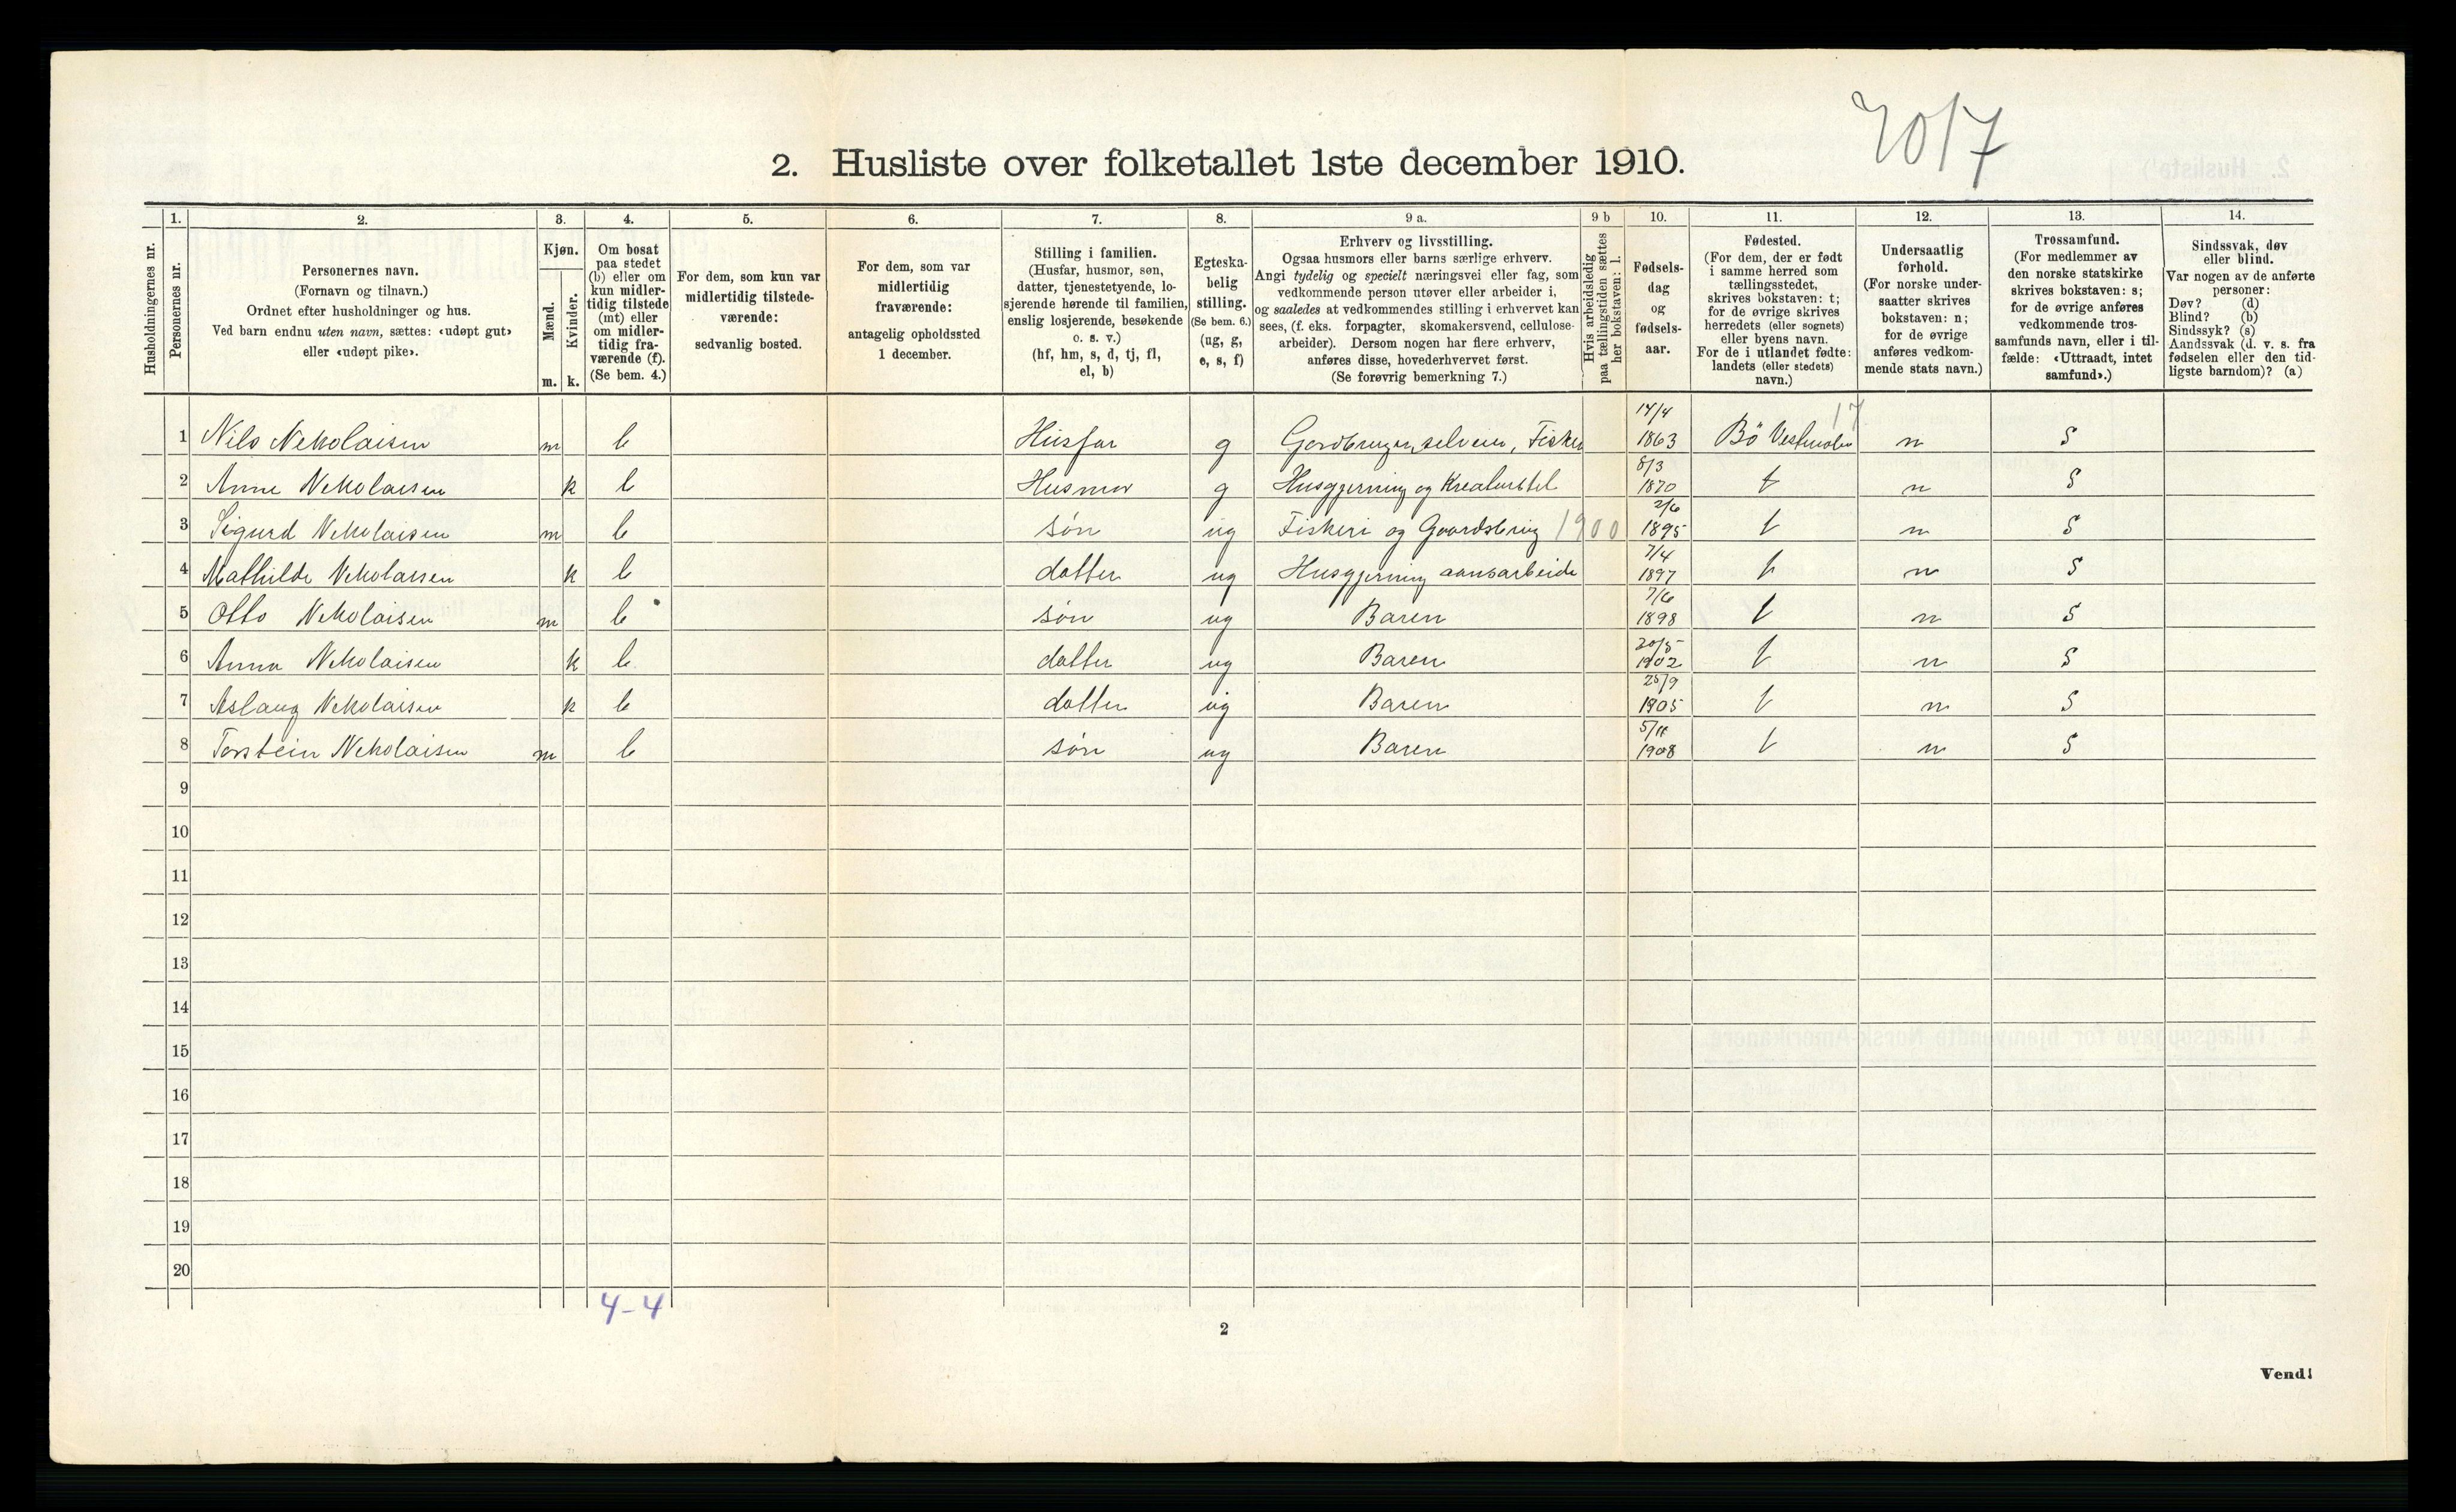 2017
2. Husliste over folketallet 1ste december 1910.
1. 2. 3. 4. 5. 6. 7. 8. 9 a. 9 b 10. 11. 12. 13. 14.
Husholdningernes nr.
Personernes nr.
Personernes navn.
(Fornavn og tilnavn.)
Ordnet efter husholdninger og hus.
Ved barn endnu uten navn, sættes: «udøpt gut»
eller «udøpt pike».
Kjøn.
Mænd.
Kvinder.
m. k.
Om bosat
paa stedet
(b) eller om
kun midler-
tidig tilstede
(mt) eller
om midler-
tidig fra-
værende (f).
(Se bem. 4.)
For dem, som kun var
midlertidig tilstede-
værende:
sedvanlig bosted.
For dem, som var
midlertidig
fraværende:
antagelig opholdssted
1 december.
Stilling i familien.
(Husfar, husmor, søn,
datter, tjenestetyende, lo-
sjerende hørende til familien,
enslig losjerende, besøkende
o. s. v.)
(hf, hm, s, d, tj, fl,
el, b)
Egteska-
belig
stilling.
(Se bem. 6.)
(ug, g,
e, s, f)
Erhverv og livsstilling.
Ogsaa husmors eller barns særlige erhverv.
Angi tydelig og specielt næringsvei eller fag, som
vedkommende person utøver eller arbeider i,
og saaledes at vedkommendes stilling i erhvervet kan
sees, (f. eks. forpagter, skomakersvend, cellulose-
arbeider). Dersom nogen har flere erhverv,
anføres disse, hovederhvervet først.
(Se forøvrig bemerkning 7.)
Hvis arbeidsledig
paa tællingstiden sættes
her bokstaven: l.
Fødsels-
dag
og
fødsels-
aar.
Fødested.
(For dem, der er født
i samme herred som
tællingsstedet,
skrives bokstaven: t;
for de øvrige skrives
herredets (eller sognets)
eller byens navn.
For de i utlandet fødte:
landets (eller stedets)
navn.)
Undersaatlig
forhold.
(For norske under-
saatter skrives
bokstaven: n;
for de øvrige
anføres vedkom-
mende stats navn.)
Trossamfund.
(For medlemmer av
den norske statskirke
skrives bokstaven: s;
for de øvrige anføres
vedkommende tros-
samfunds navn, eller i til-
fælde: «Uttraadt, intet
samfund».)
Sindssvak, døv
eller blind.
Var nogen av de anførte
personer:
Døv? (d)
Blind? (b)
Sindssyk? (s)
Aandssvak (d. v. s. fra
fødselen eller den tid-
ligste barndom)? (a)
1 Nils Nekolaisen m b Husfar g Gordbruger, selveier, Fisker 14/4 1863 Bö Vesteraalen 17 n S
2 Anne Nekolaisen k b Husmor g Husgjerning og Kreaturstel 8/3 1870 t n S
3 Sigurd Nekolaisen m b søn ug Fiskeri og Gaardsbrug 1900 2/6 1895 t n S
4 Mathilde Nekolaisen k b datter ug Husgjerning 7/4 1897 t n S
5 Otto Nekolaisen m b søn ug Baren 7/6 1898 t n S
6 Anna Nekolaisen k b datter ug Baren 20/5 1902 t n S
7 Aslaug Nekolaisen k b datter ug Baren 25/9 1905 t n S
8 Torstein Nekolaisen m b søn ug Baren 5/11 1908 t n S
9
10
11
12
13
14
15
16
17
18
19
20
4-4
2
Vend!